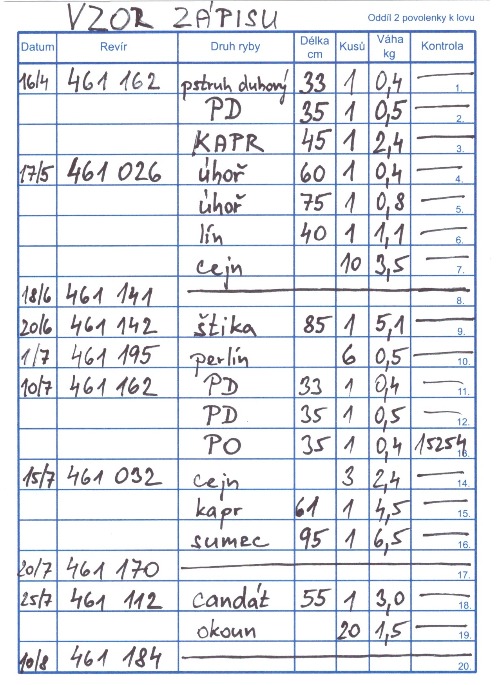 VZOR ZÁPISU
Oddíl 2 povolenky k lovu
Datum Revír Druh ryby Délka cm Kusů Váha kg Kontrola
16/4 461 162 pstruh duhový 33 1 0,4 — 1.
PD 35 1 0,5 — 2.
KAPR 45 1 2,4 — 3.
17/5 461 026 úhoř 60 1 0,4 — 4.
úhoř 75 1 0,8 — 5.
lín 40 1 1,1 — 6.
cejn 10 3,5 — 7.
18/6 461 141 — 8.
20/6 461 142 štika 85 1 5,1 — 9.
1/7 461 195 perlín 6 0,5 — 10.
10/7 461 162 PD 33 1 0,4 — 11.
PD 35 1 0,5 — 12.
PO 35 1 0,4 15254 13.
15/7 461 032 cejn 3 2,4 — 14.
kapr 61 1 4,5 — 15.
sumec 95 1 6,5 — 16.
20/7 461 170 — 17.
25/7 461 112 candát 55 1 3,0 — 18.
okoun 20 1,5 — 19.
10/8 461 184 — 20.